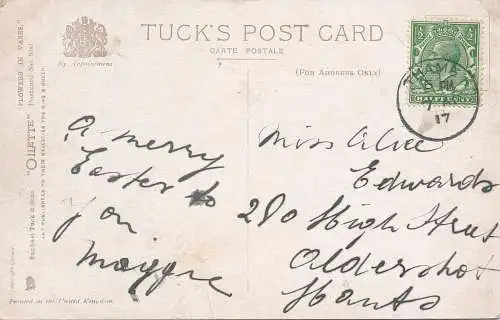 TUCK'S POST CARD
CARTE POSTALE
By Appointment
(FOR ADDRESS ONLY)
HALFPENNY
THAM
5 PM
17
"FLOWERS IN VASES."
"OILETTE"
RAPHAEL TUCK & SONS
ART PUBLISHERS TO THEIR MAJESTIES THE KING & QUEEN
A merry
Easter to
you
Maggie
Miss Alice
Edwards
210 High Street
Aldershot
Hants
Printed in the United Kingdom.